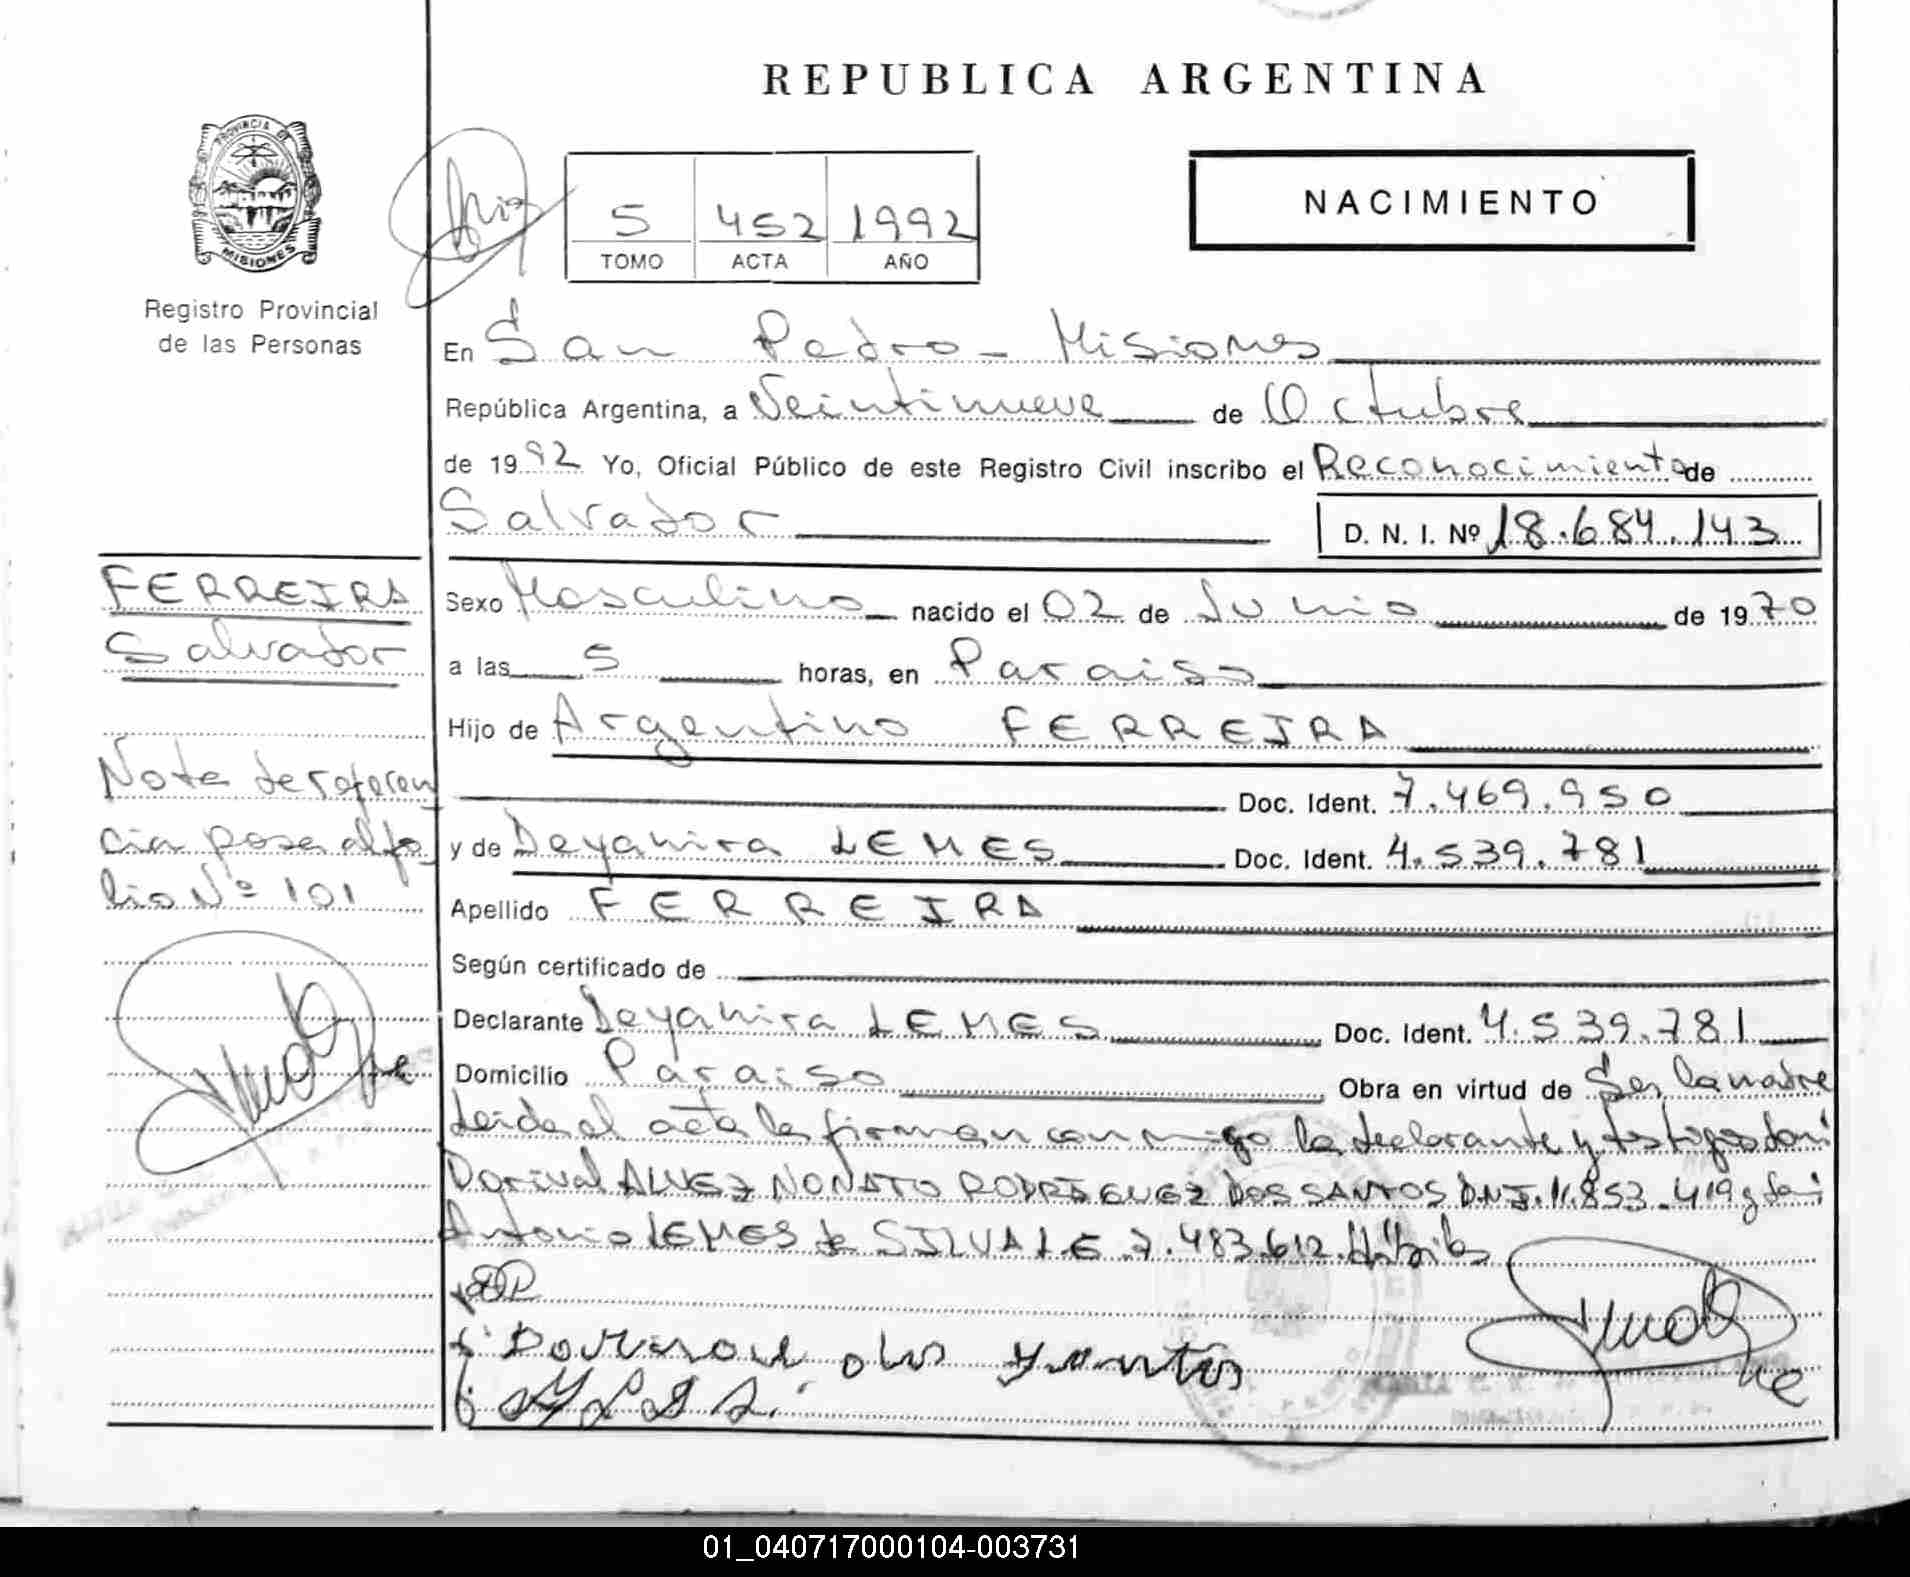 REPUBLICA ARGENTINA
PROVINCIA DE
MISIONES
Registro Provincial
de las Personas
5 452 1992
TOMO ACTA AÑO
NACIMIENTO
En San Pedro - Misiones
República Argentina, a Veintinueve de Octubre
de 1992 Yo, Oficial Público de este Registro Civil inscribo el Reconocimiento de
Salvador
D. N. I. Nº 18.684.143
FERREIRA
Salvador
Nota de referen
cia pasa al fo
lio Nº 101
Sexo Masculino nacido el 02 de Junio de 1970
a las 5 horas, en Paraiso
Hijo de Argentino FERREIRA
Doc. Ident. 7.469.950
y de Deyanira LEMES Doc. Ident. 4.539.781
Apellido FERREIRA
Según certificado de
Declarante Deyanira LEMES Doc. Ident. 4.539.781
Domicilio Paraiso Obra en virtud de Ser la madre
Leida el acta la firman conmigo la declarante y testigos
Dorival ALVEZ NONATO RODRIGUEZ DOS SANTOS D.N.I. 11.853.419 y
Antonio LEMES de SILVA L E 7.483.612
01_040717000104-003731